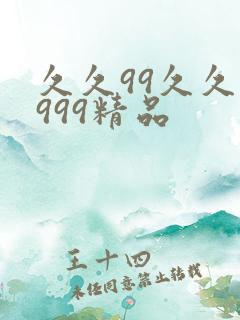 久久99久久
999精品
王十四
未经同意禁止转载